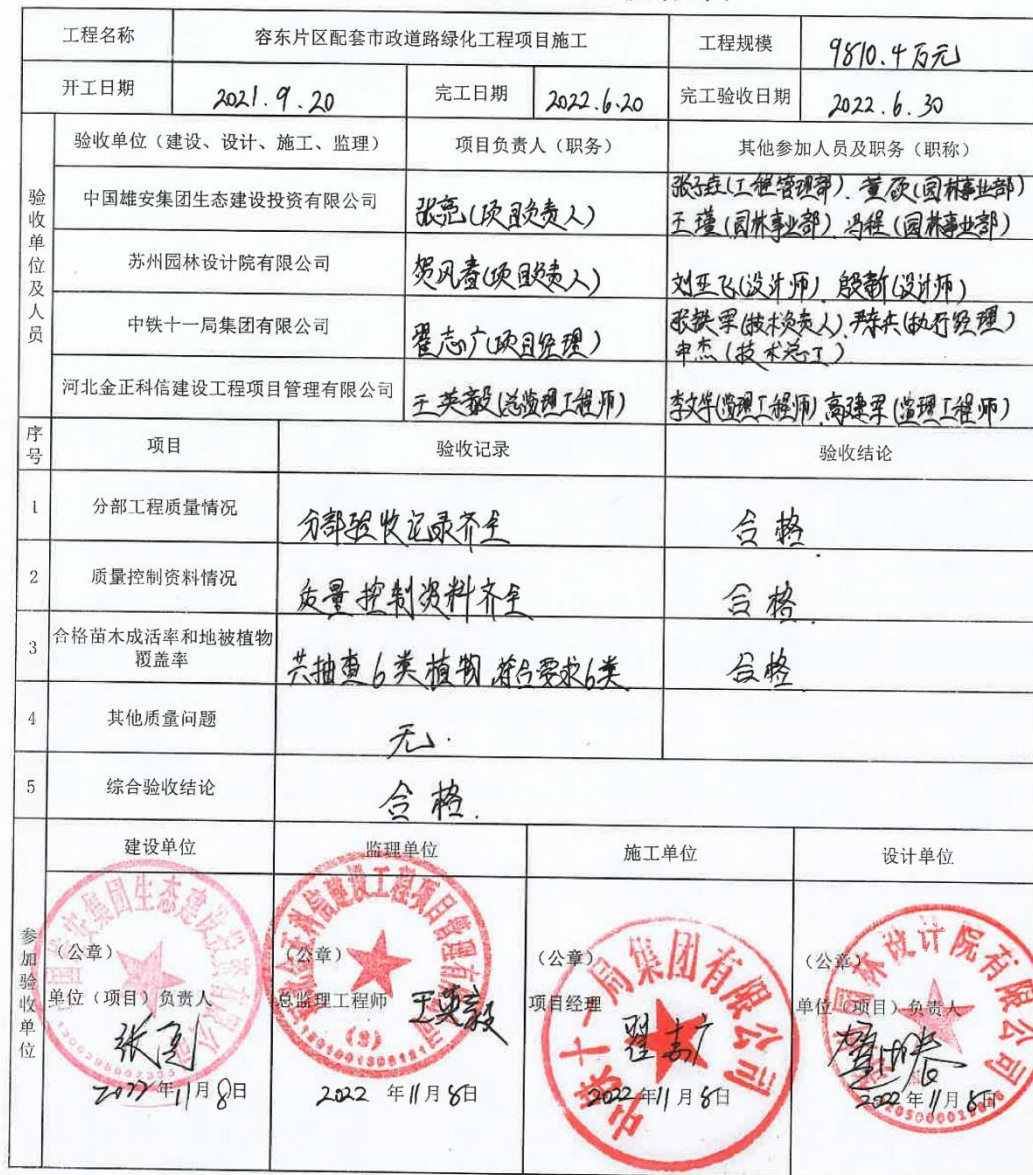 工程名称
容东片区配套市政道路绿化工程项目施工
工程规模
9810.4万元
开工日期
2021.9.20
完工日期
2022.6.20
完工验收日期
2022.6.30
验收单位及人员
验收单位（建设、设计、施工、监理）
项目负责人（职务）
其他参加人员及职务（职称）
中国雄安集团生态建设投资有限公司
张亮(项目负责人)
(工程管理部). 董硕(园林事业部)
王瑾(园林事业部) 冯程(园林事业部)
苏州园林设计院有限公司
贺风春(项目负责人)
刘亚飞(设计师) 殷新(设计师)
中铁十一局集团有限公司
翟志广(项目经理)
张铁军(技术负责人) (执行经理)
申杰(技术总工)
河北金正科信建设工程项目管理有限公司
王英毅(总监理工程师)
李文华(监理工程师) 高建军(监理工程师)
序号
项目
验收记录
验收结论
1
分部工程质量情况
分部验收记录齐全
合格
2
质量控制资料情况
质量控制资料齐全
合格
3
合格苗木成活率和地被植物
覆盖率
共抽查6类植物,符合要求6类
合格
4
其他质量问题
无.
5
综合验收结论
合格.
参加验收单位
建设单位
监理单位
施工单位
设计单位
（公章）
（公章）
（公章）
（公章）
单位（项目）负责人
总监理工程师 王英毅
项目经理
单位（项目）负责人
张亮
翟志广
贺风春
2022年11月8日
2022年11月8日
2022年11月8日
2022年11月8日
雄安集团生态建设投资有限公司
金正科信建设工程项目管理有限公司
(2)
中铁十一局集团有限公司
园林设计院有限公司